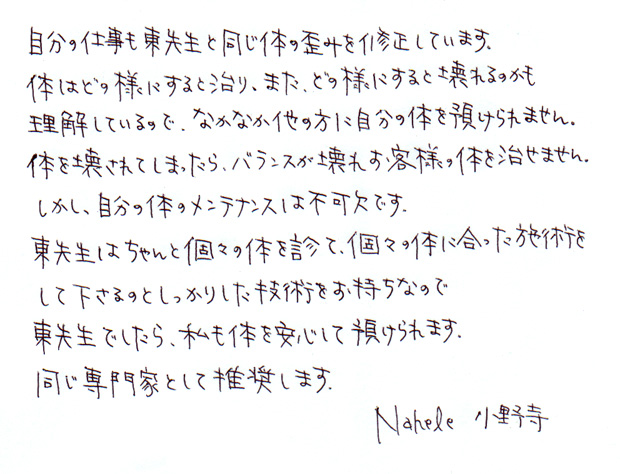 自分の仕事も東先生と同じ体の歪みを修正しています。
体はどの様にすると治り、また、どの様にすると壊れるのかも
理解しているので、なかなか他の方に自分の体を預けられません。
体を壊されてしまったら、バランスが壊れお客様の体を治せません。
しかし、自分の体のメンテナンスは不可欠です。
東先生はちゃんと個々の体を診て、個々の体に合った施術を
して下さるのとしっかりした技術をお持ちなので
東先生でしたら、私も体を安心して預けられます。
同じ専門家として推奨します。
Nahele 小野寺